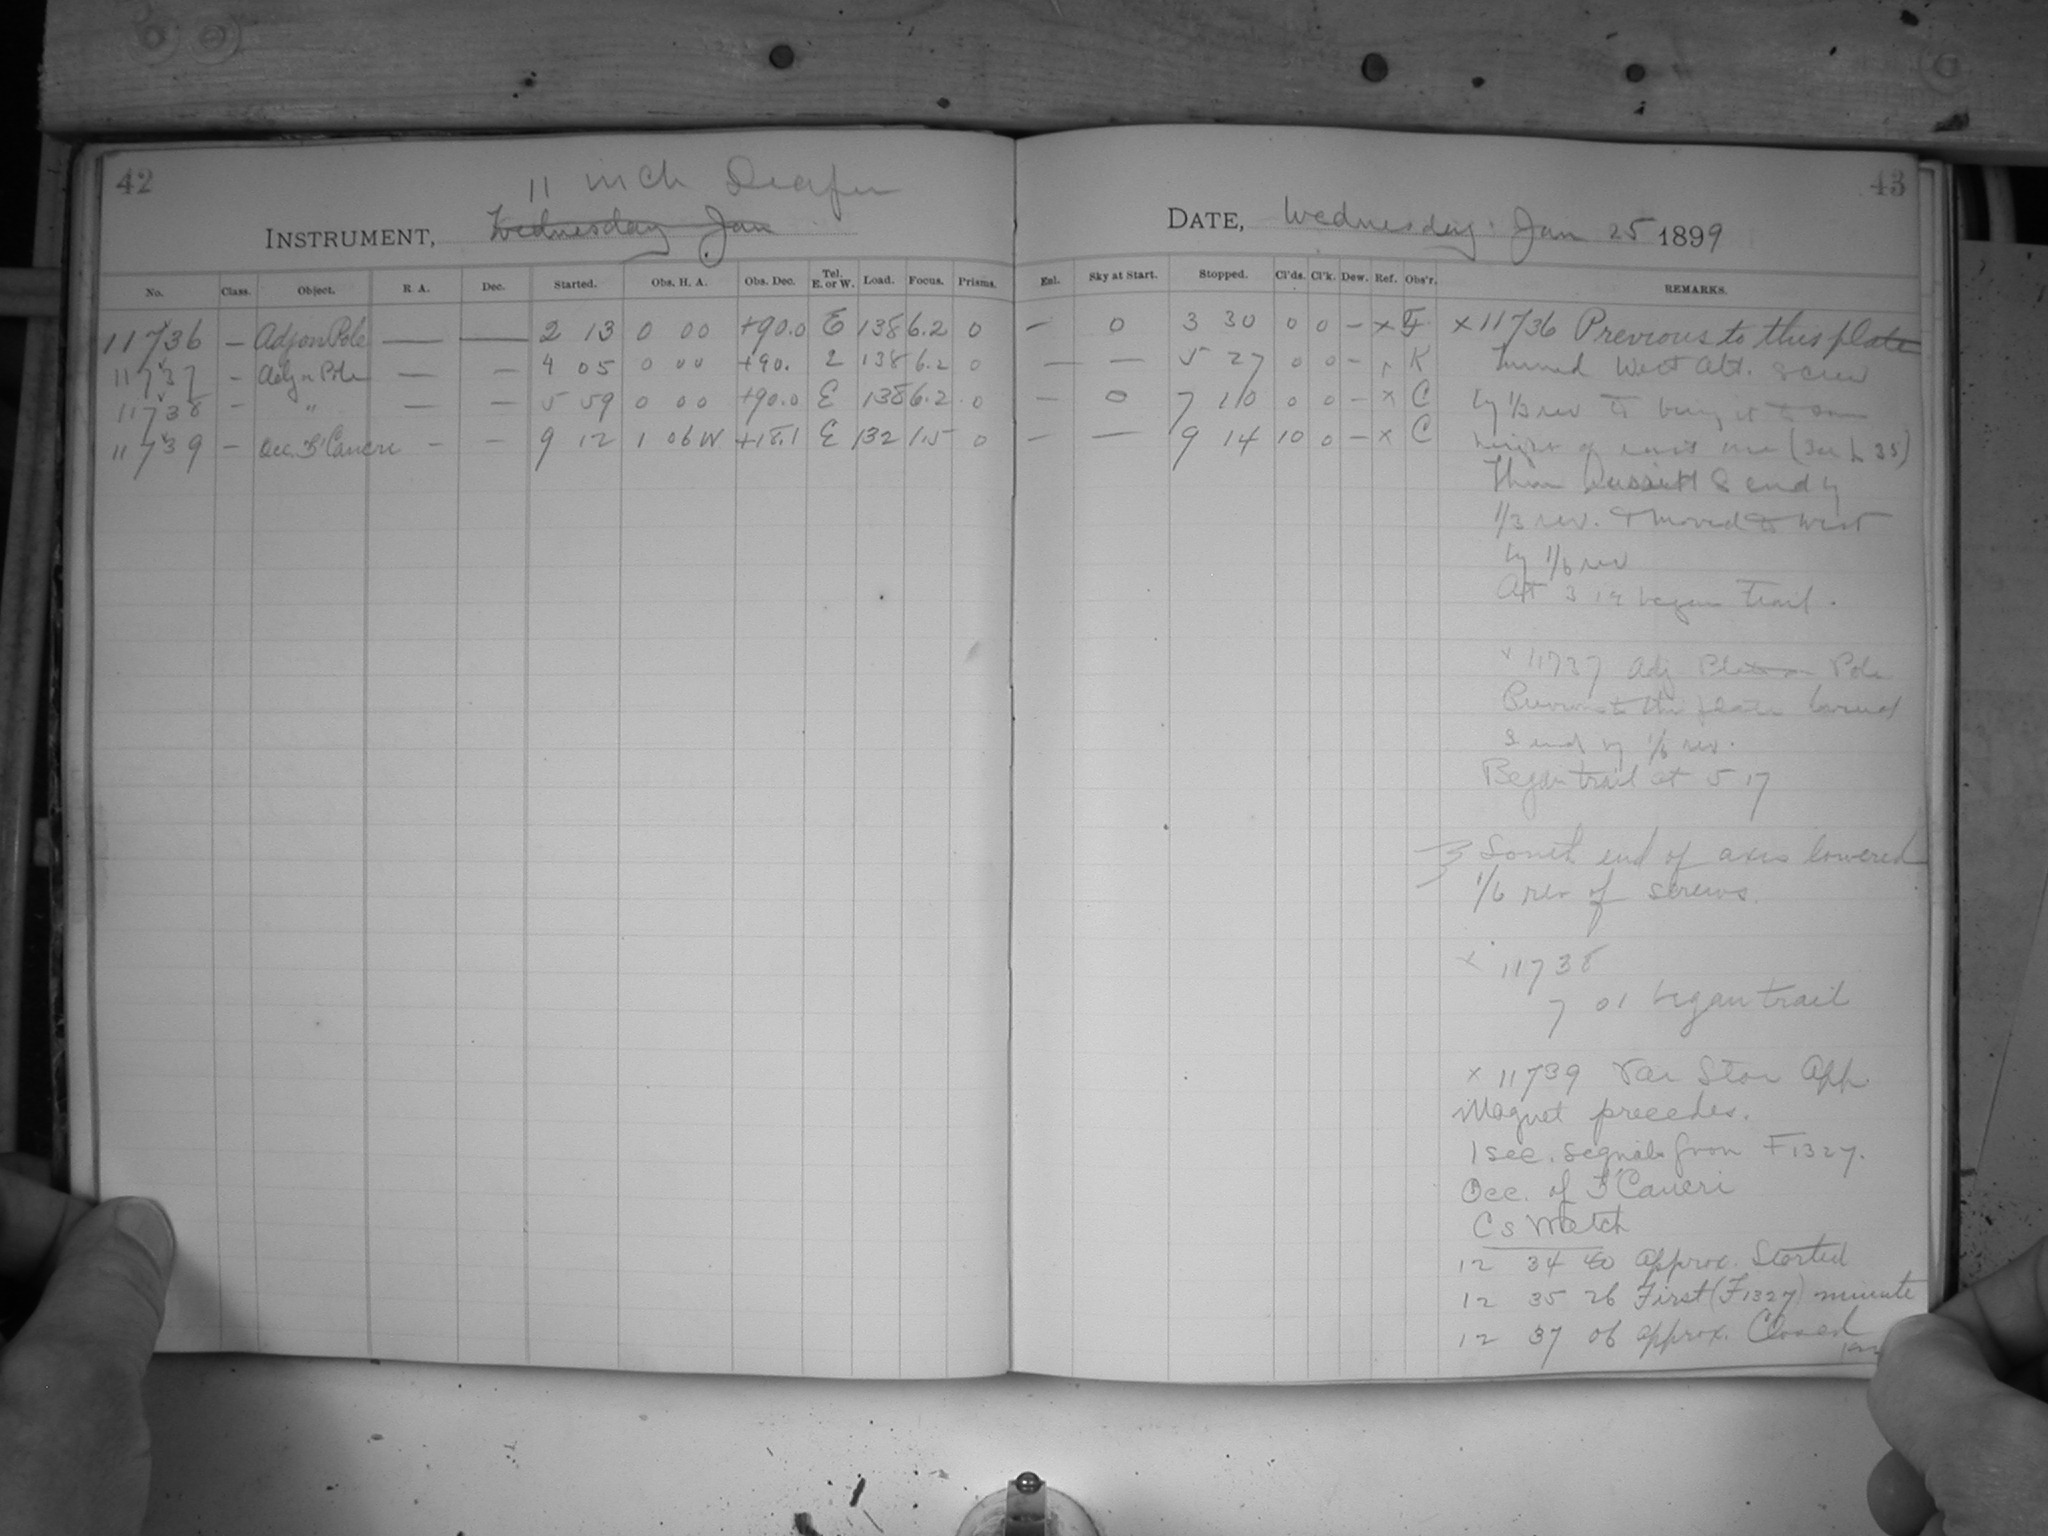 42
11 inch Draper
INSTRUMENT, Wednesday Jan
No. Class. Object. R. A. Dec. Started. Obs. H. A. Obs. Dec. Tel. E. or W. Load. Focus. Prisms.
11736 — Adj on Pole — — 2 13 0 00 +90.0 E 138 6.2 0
11737 — Adj n Pole — — 4 05 0 00 +90. 138 6.2 0
11738 — " — — 5 59 0 00 +90.0 E 138 6.2 0
11739 — Occ. 3' Cancri — — 9 12 1 06 W +18.1 E 132 1.5 0
43
DATE, Wednesday: Jan 25 1899
Enl. Sky at Start. Stopped. Cl'ds. Cl'k. Dew. Ref. Obs'r. REMARKS.
— 0 3 30 0 0 — x F
— — 5 27 0 0 — K
— 0 7 10 0 0 — x C
— — 9 14 10 0 — x C
x 11736 Previous to this plate
turned West Alt. screw
by 1/3 rev to bring it to same
height of east one (See p 35)
Then S end by
1/3 rev. & moved to West
by 1/6 rev
At 3 19 began trail.
x 11737 Adj Pole
Previous to this plate lowered
S end by 1/6 rev.
Began trail at 5 17
South end of axis lowered
1/6 rev of screws.
x 11738
7 01 began trail
x 11739 Var Star App.
Magnet precedes.
1 sec. signals from F 1327.
Occ. of 3' Cancri
Cs Watch
12 34 40 approx. Started
12 35 26 First (F1327) minute
12 37 06 approx. Closed